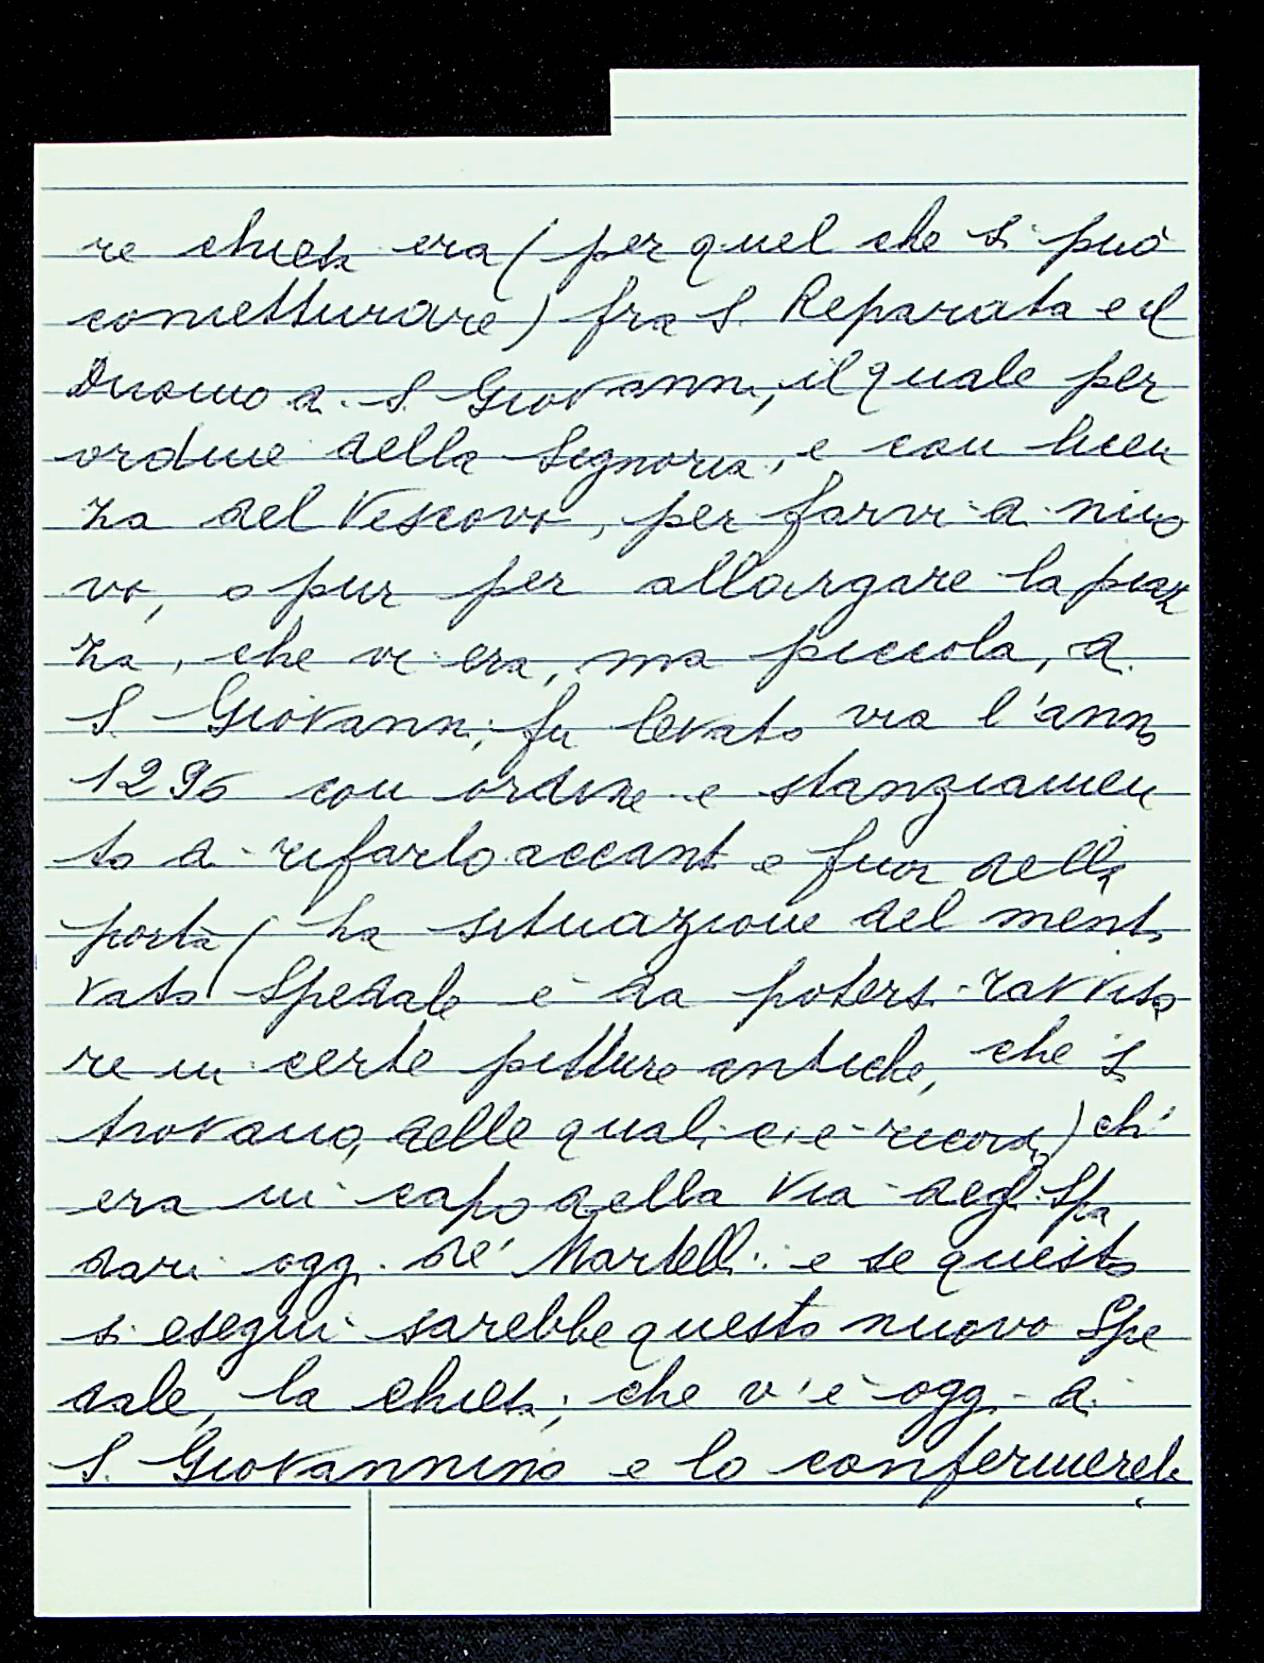 re chiesa era (per quel che si può
conietturare) fra S. Reparata e il
Duomo di S. Giovanni, il quale per
ordine della Signoria, e con licen
za del Vescovo, per farvi di nuo
vo, o pur per allargare la piaz
za, che vi era, ma piccola, di
S. Giovanni; fu levato via l'anno
1296 con ordine e stanziamen
to di rifarlo accanto e fuor della
porta (la situazione del mento
vato Spedale è da potersi ravvisa
re in certe pitture antiche, che si
trovano, delle quali ci è ricordo) ch'
era in capo della via degli Spa
dari oggi de' Martelli: e se questo
si eseguì sarebbe questo nuovo Spe
dale, la chiesa, che v'è oggi di
S. Giovannino e lo confermereb